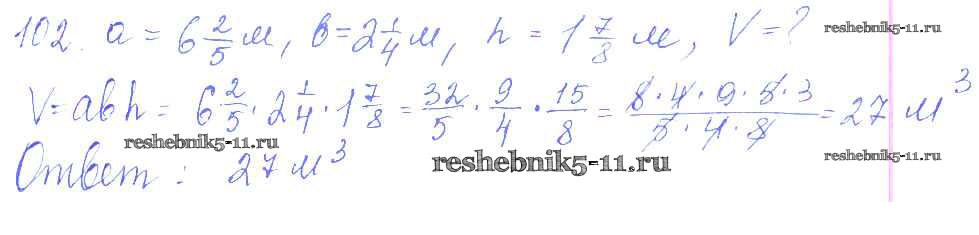 102. a = 6 2/5 м, b = 2 1/4 м, h = 1 7/8 м, V = ? reshebnik5-11.ru
V = abh = 6 2/5 · 2 1/4 · 1 7/8 = 32/5 · 9/4 · 15/8 = (8 · 4 · 9 · 5 · 3)/(5 · 4 · 8) = 27 м³
reshebnik5-11.ru
Ответ: 27 м³ reshebnik5-11.ru reshebnik5-11.ru